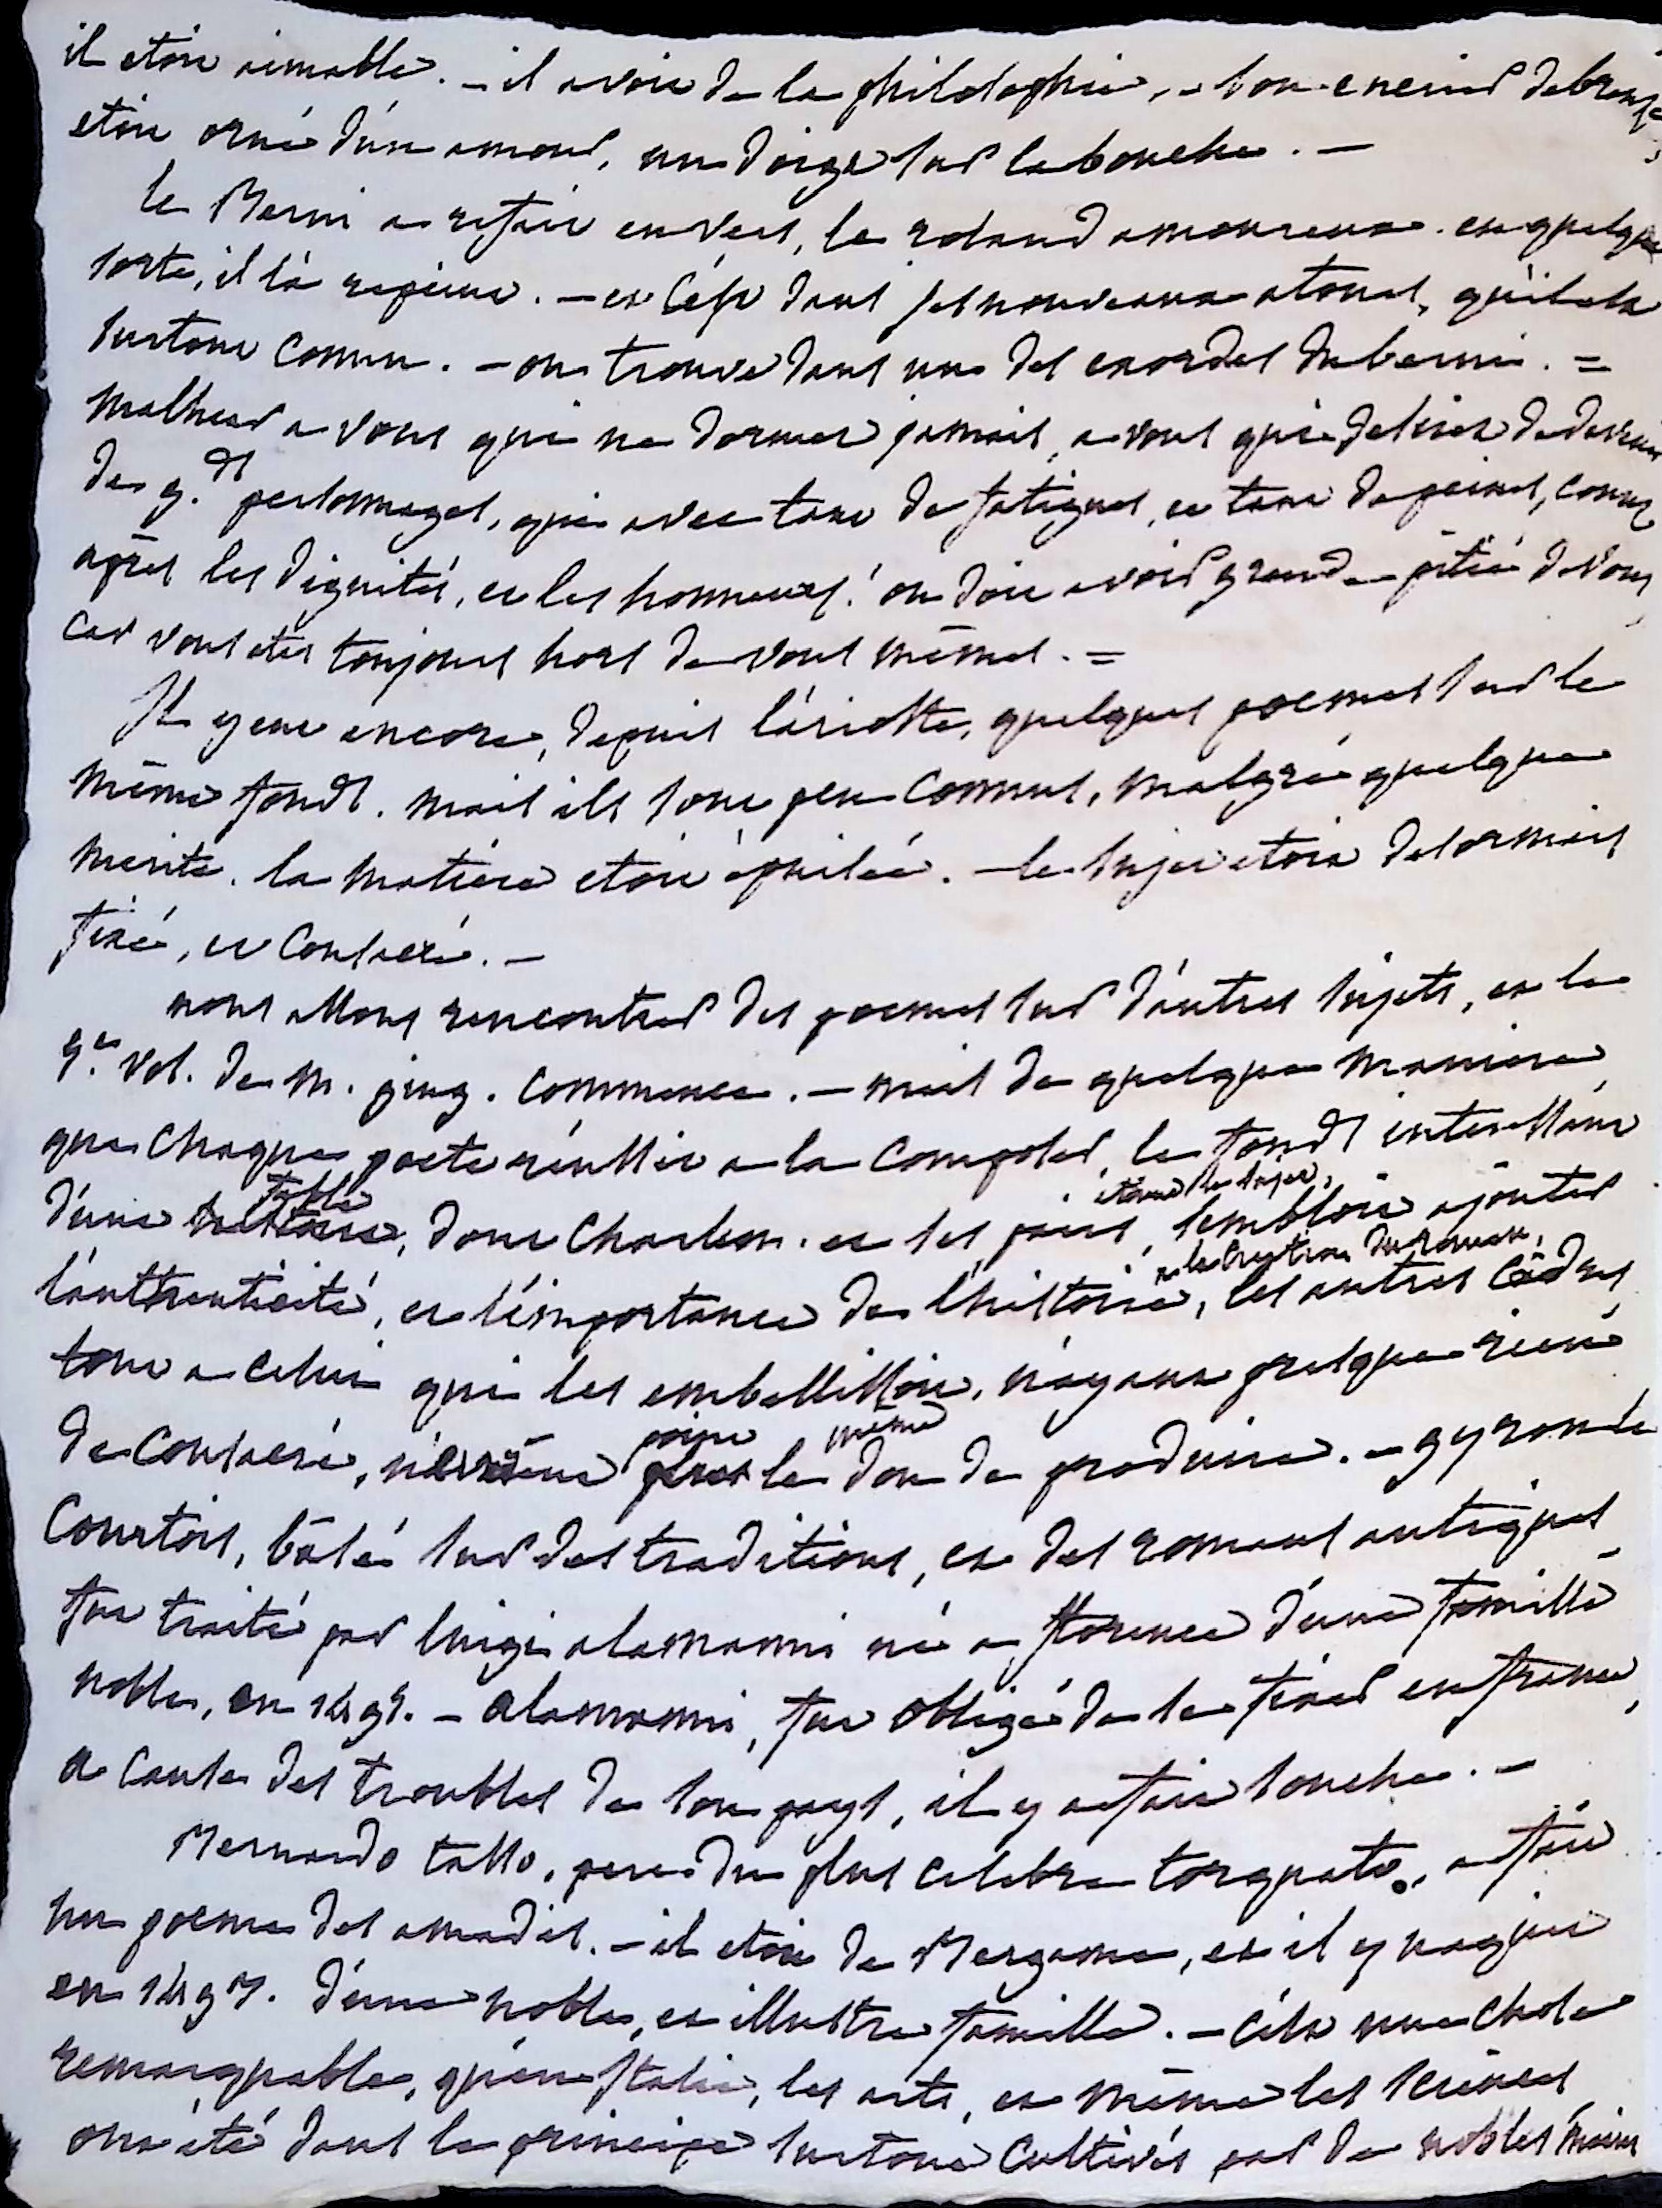 il etoit aimable. – il avoit de la philosophie, – son encrier de bronze
etoit orné d'un amour, un doigt sur la bouche. –
le Berni a refait en vers, le roland amoureux. en quelque
sorte, il l'a repeint. – et c'est dans ses nouveaux atours, qu'il est
surtout connu. – on trouve dans un des exordes du berni. =
malheur a vous qui ne dormez jamais, a vous qui desirez de devenir
de g.ds personnages, qui avec tant de fatigues, et tant de peines, courez
après les dignités, et les honneurs! on doit avoir grande pitié de vous
car vous etes toujours hors de vous mêmes. =
Il y eut encore, depuis l'arioste, quelques poemes sur le
même fonds. mais ils sont peu connus, malgré quelque
merite. la matiere etoit épuisée. – le sujet etoit desormais
fixé, et consacré. –
nous allons rencontrer des poemes sur d'autres sujets, et le
vol. de m. ging. commence. – mais de quelque maniere
que chaque poete réussit a la composer, le fonds interessant
d'une fable, dont Charlem. et ses pairs, etoient le sujet, sembloit ajouter
l'authenticité, et l'importance de l'histoire, a la création du roman, les autres cadres
tout a celui qui les embellissoit, n'ayant presque rien
de consacré, point le don même de produire. – gyron le
Courtois, bâsé sur des traditions, et des romans antiques
fut traité par luigi alamanni né a florence d'une famille
noble, en 1495. – alamanni, fut obligé de se fixer en france,
a cause des troubles de son pays, il y a fait souche. –
Bernardo tasso, pere du plus celebre torquato, a fait
un poeme des amadis. – il etoit de Bergame, et il y naquit
en 1493. d'une noble, et illustre famille. – c'est une chose
remarquable, qu'en Italie, les arts, et même les sciences
ont été dans le principe surtout cultivés par de nobles mains